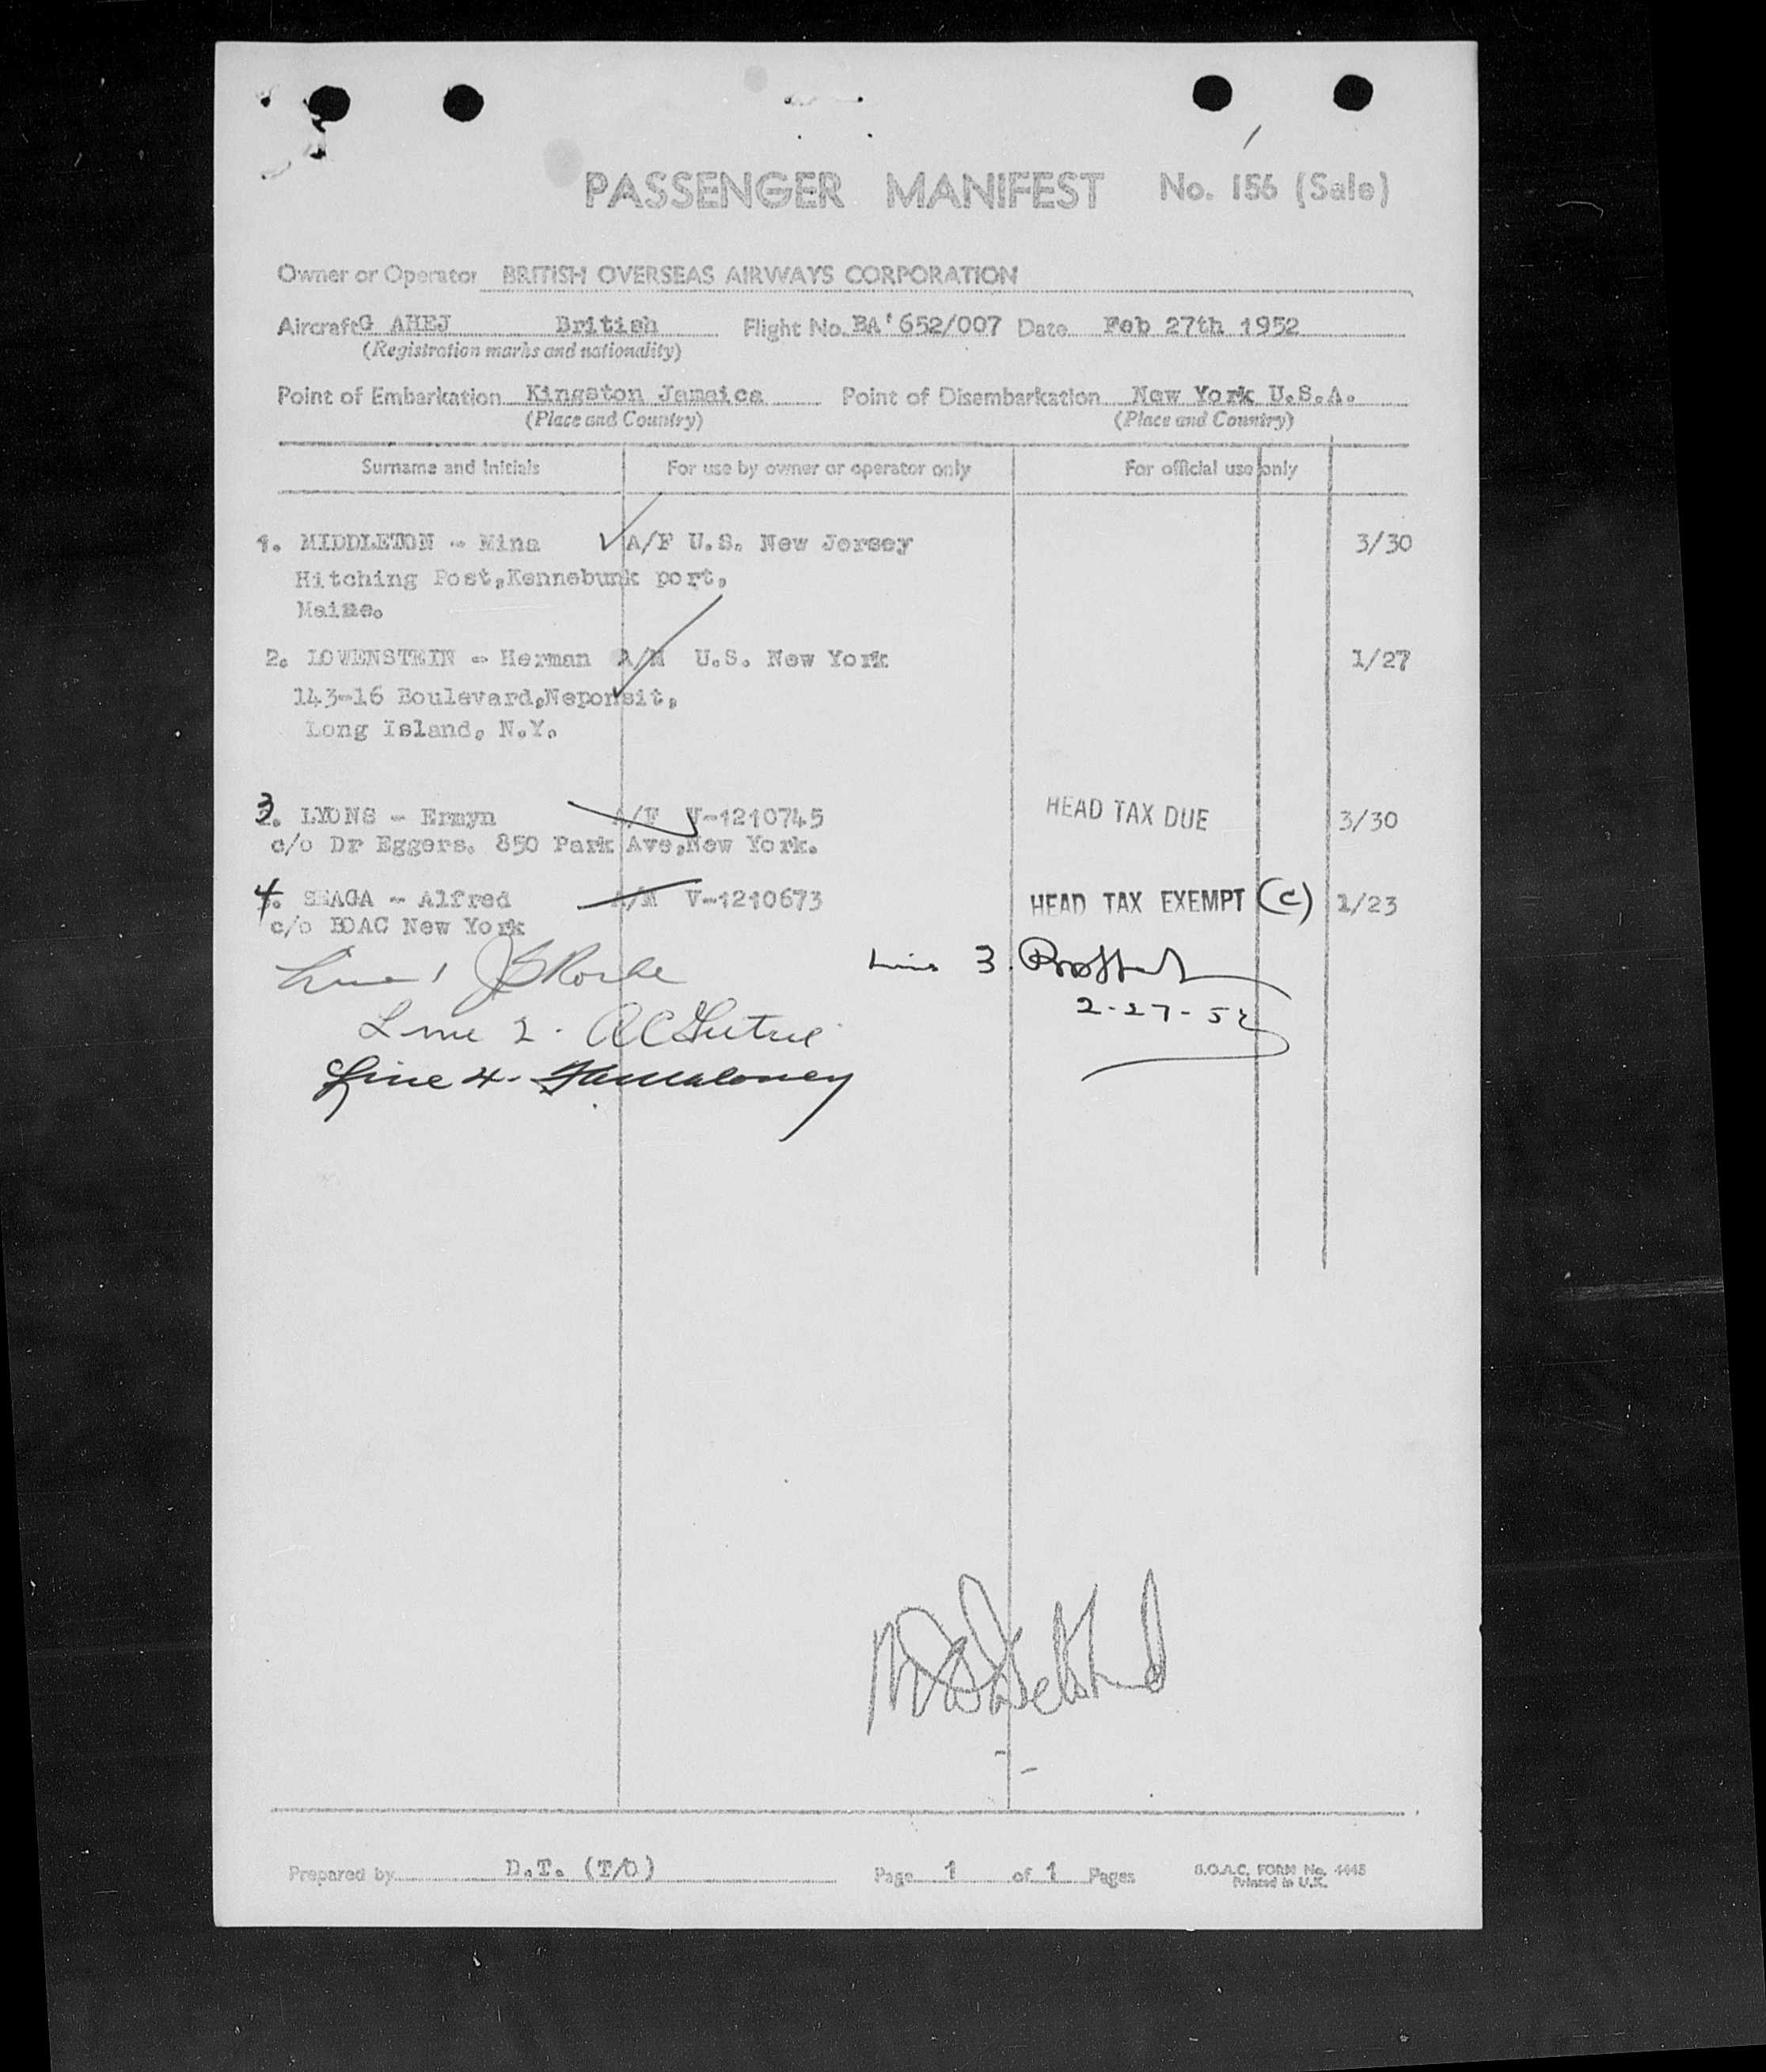 PASSENGER MANIFEST No. 156 (Sale)
Owner or Operator BRITISH OVERSEAS AIRWAYS CORPORATION
Aircraft G AHEJ British Flight No. BA'652/007 Date Feb 27th 1952
(Registration marks and nationality)
Point of Embarkation Kingston Jamaica Point of Disembarkation New York U.S.A.
(Place and Country) (Place and Country)
Surname and Initials For use by owner or operator only For official use only
1. MIDDLETON - Mina A/F U.S. New Jersey 3/30
Hitching Post,Kennebunk port,
Maine.
2. LOWENSTEIN - Herman A/M U.S. New York 1/27
143-16 Boulevard,Neponsit,
Long Island, N.Y.
3. LYONS - Ermyn A/F V-1210745 HEAD TAX DUE 3/30
c/o Dr Eggers. 850 Park Ave,New York.
4. SEAGA - Alfred A/M V-1210673 HEAD TAX EXEMPT (C) 1/23
c/o BOAC New York
Line 1 Line 3.
2-27-52
Line 2.
Line 4.
Prepared by D.T. (T/O) Page 1 of 1 Pages B.O.A.C. FORM No. 4445
Printed in U.K.